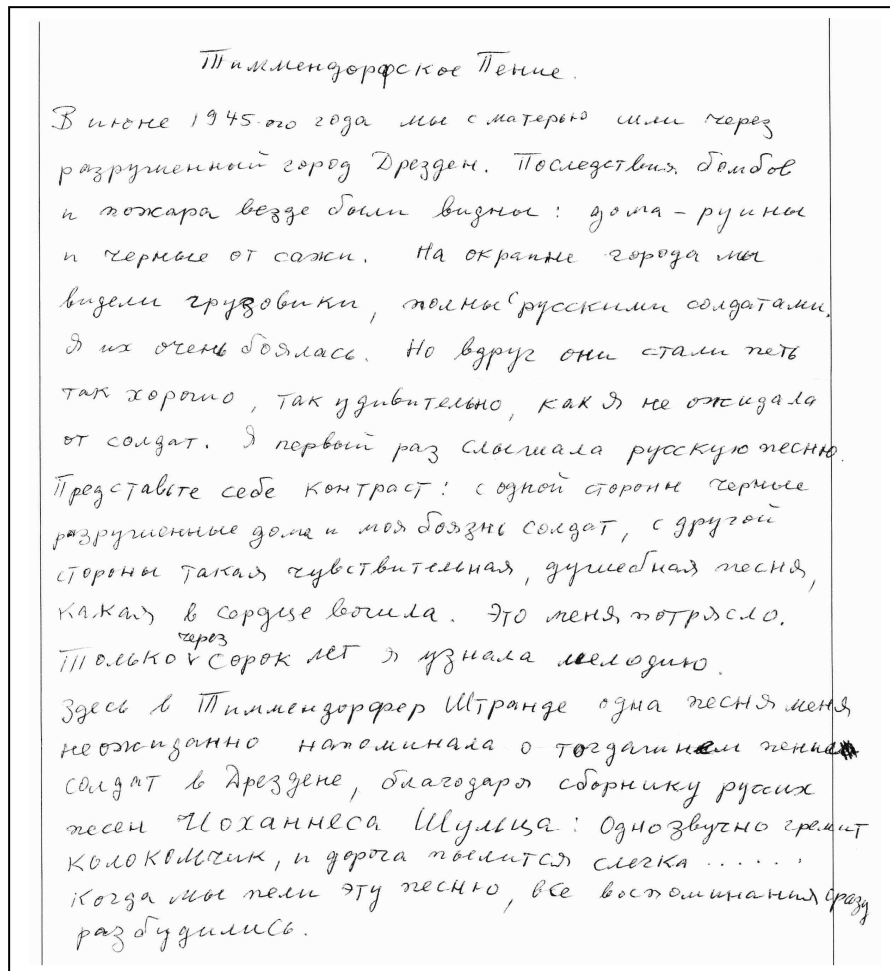 Тиммендорфское Пение.
В июне 1945-ого года мы с матерью шли через
разрушенный город Дрезден. Последствия бомбов
и пожара везде были видны: дома – руины
и черные от сажи. На окраине города мы
видели грузовики, полны с русскими солдатами.
Я их очень боялась. Но вдруг они стали петь
так хорошо, так удивительно, как я не ожидала
от солдат. Я первый раз слышала русскую песню.
Представьте себе контраст: с одной стороны черные
разрушенные дома и моя боязнь солдат, с другой
стороны такая чувствительная, душебная песня,
какая в сердце вошла. Это меня потрясло.
Только через сорок лет я узнала мелодию.
Здесь в Тиммендорфер Штранде одна песня меня
неожиданно напоминала о тогдашнем пение
солдат в Дрездене, благодаря сборнику руссих
песен Йоханнеса Шульца: Однозвучно гремит
колокомчик, и дорога пылится слегка ......
Когда мы пели эту песню, все воспоминания сразу
разбудились.